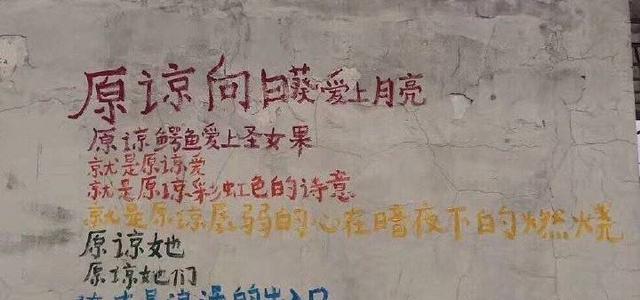 原谅向日葵爱上月亮
原谅鳄鱼爱上圣女果
就是原谅爱
就是原谅彩虹色的诗意
就是原谅孱弱的心在暗夜下的燃烧
原谅她
原谅她们
出入口